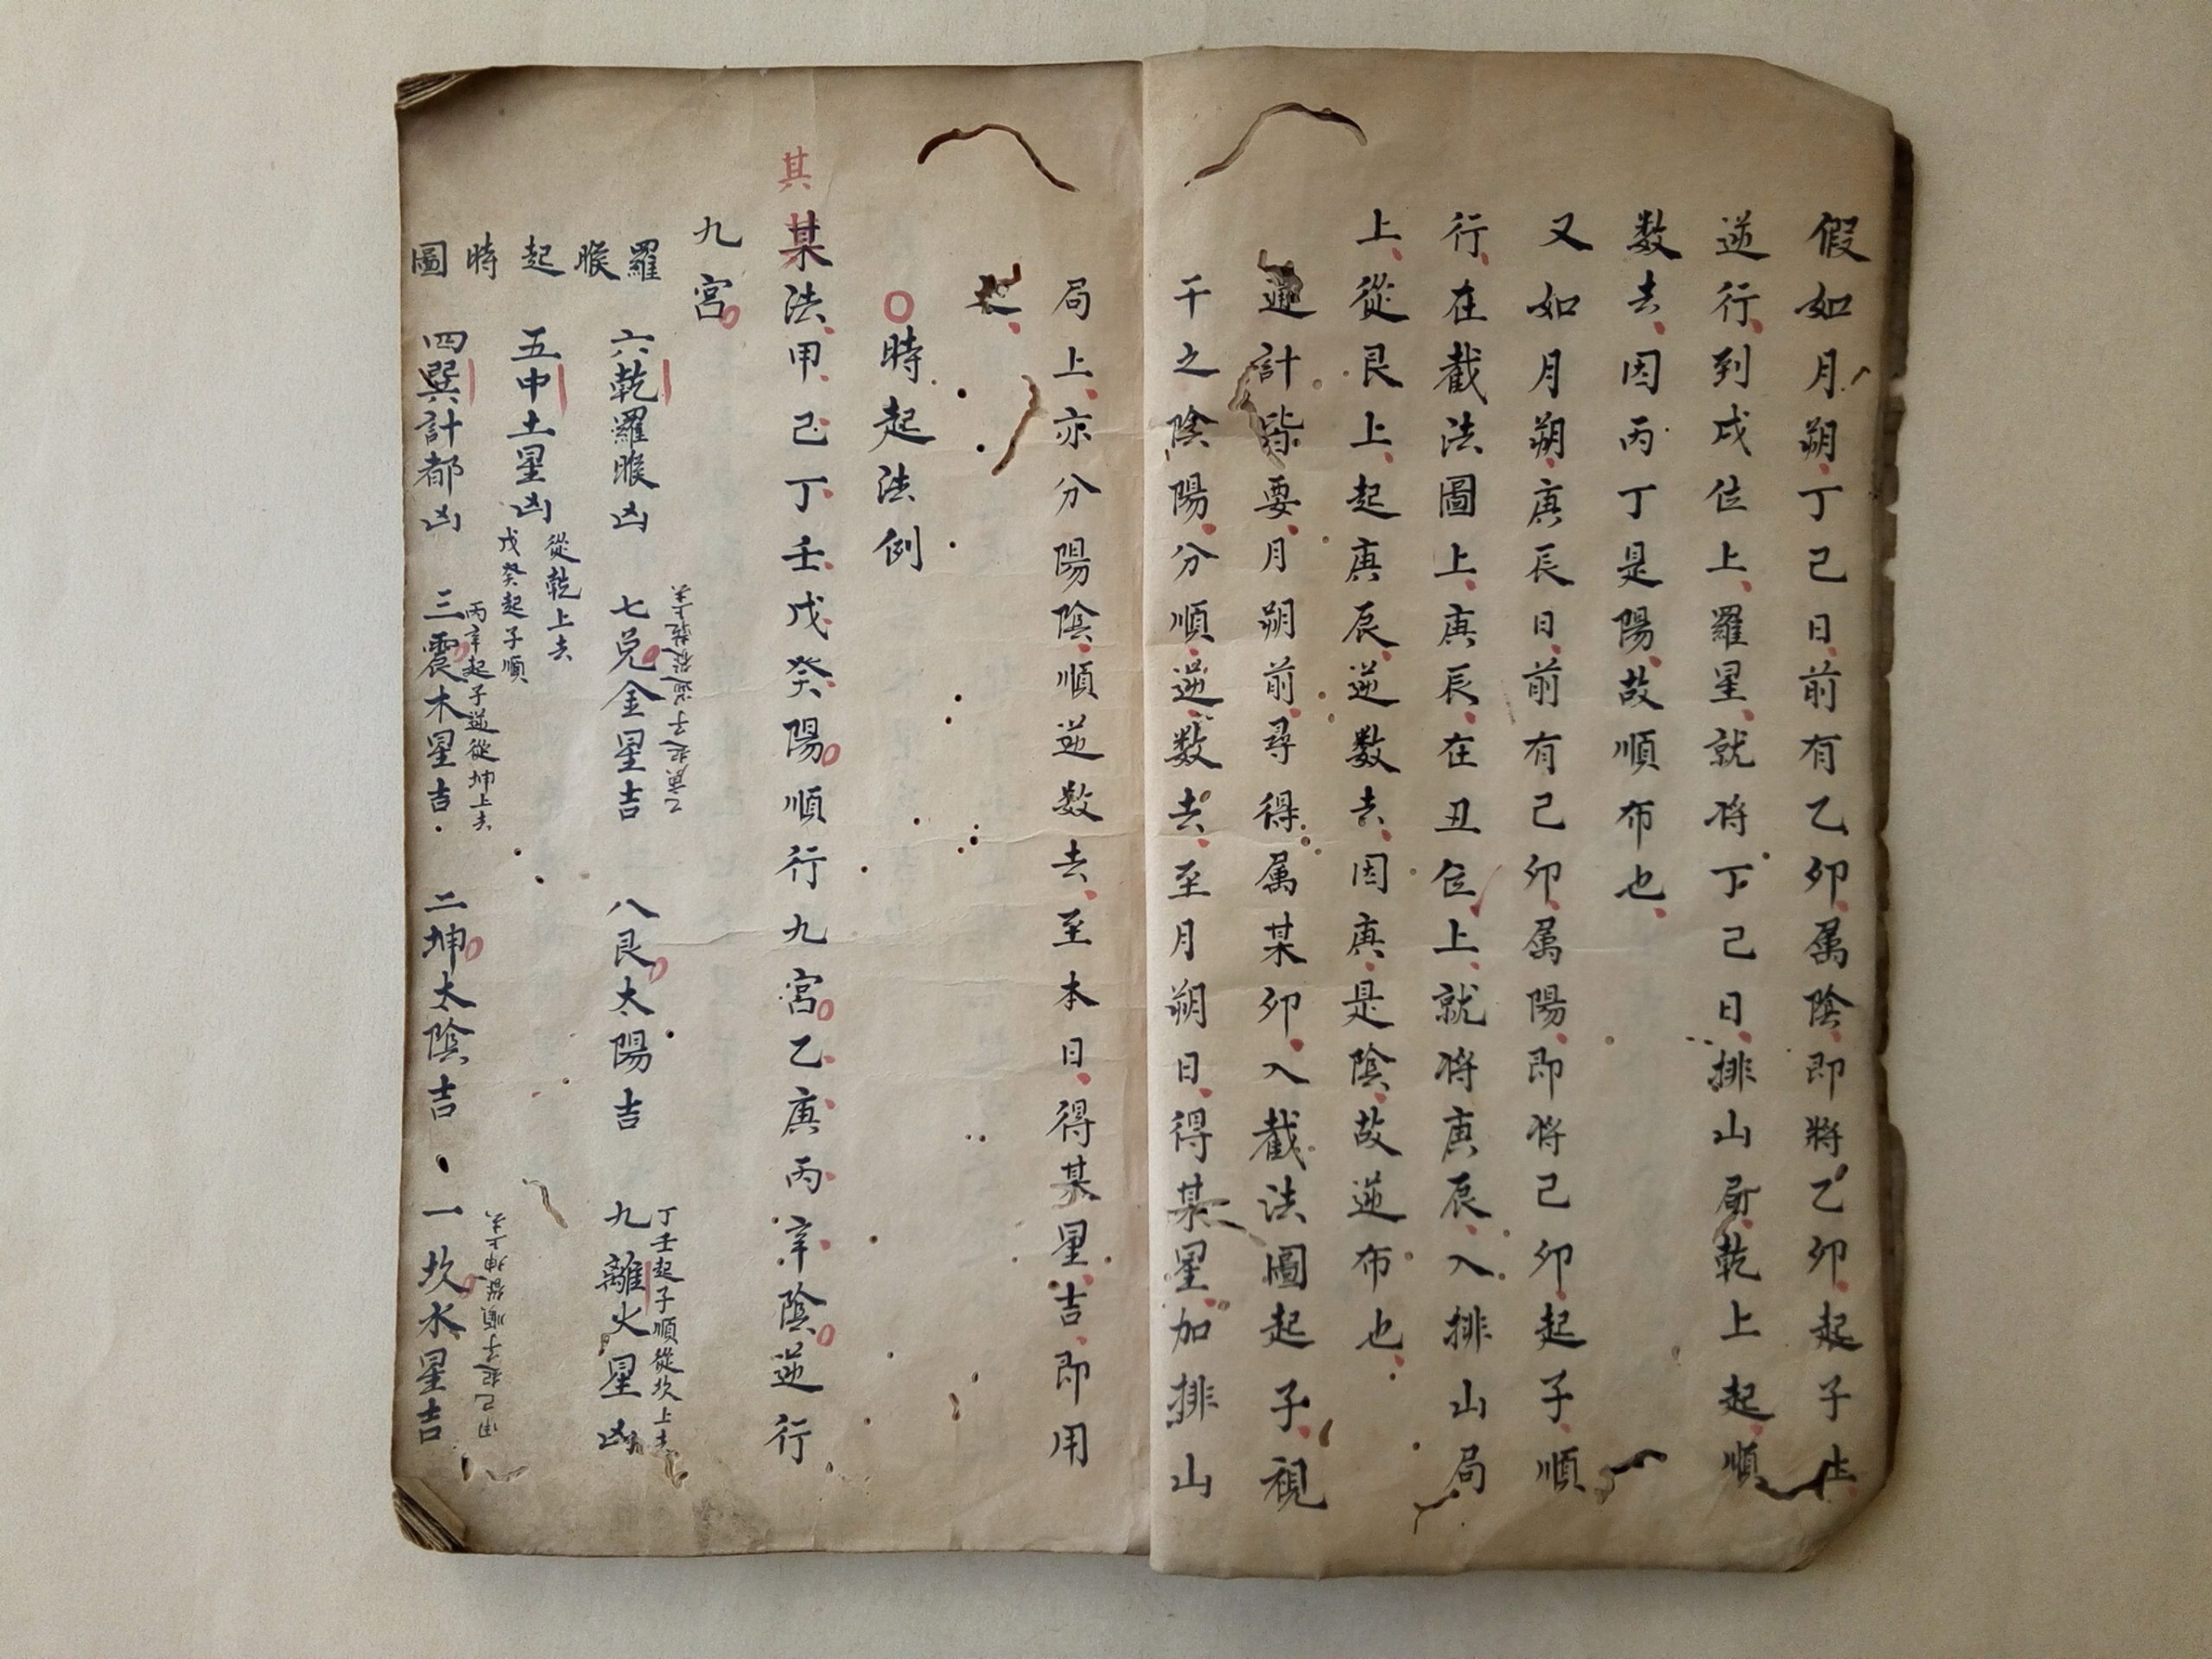 假如月朔丁己日前有乙卯属陰即將乙卯起子
逆行到戍位上羅星就将丁己日排山局乾上起順
数去因丙丁是陽故順布也
又如月朔庚辰日前有己卯属陽即将己卯起子順
行在截法圖上庚辰在丑位上就将庚辰入排山局
上從艮上起庚辰逆数去因庚是陰故逆布也
通計皆要月朔前尋得属某卯入截法圖起子視
干之陰陽分順逆数去至月朔日得某星加排山
局上亦分陽陰順逆数去至本日得某星吉即用
之
○時起法例
其
某法甲己丁壬戊癸陽順行九宮乙庚丙辛陰逆行
九宮
羅睺起時圖
乙庚起子逆從乾上去
丁壬起子順從坎上去
六乾羅睺凶 七兑金星吉 八艮太陽吉 九離火星凶
五中土星凶
從乾上去
戊癸起子順
丙辛起子逆從坤上去
甲己起子順從坤上去
四巽計都凶 三震木星吉 二坤太陰吉 一坎水星吉